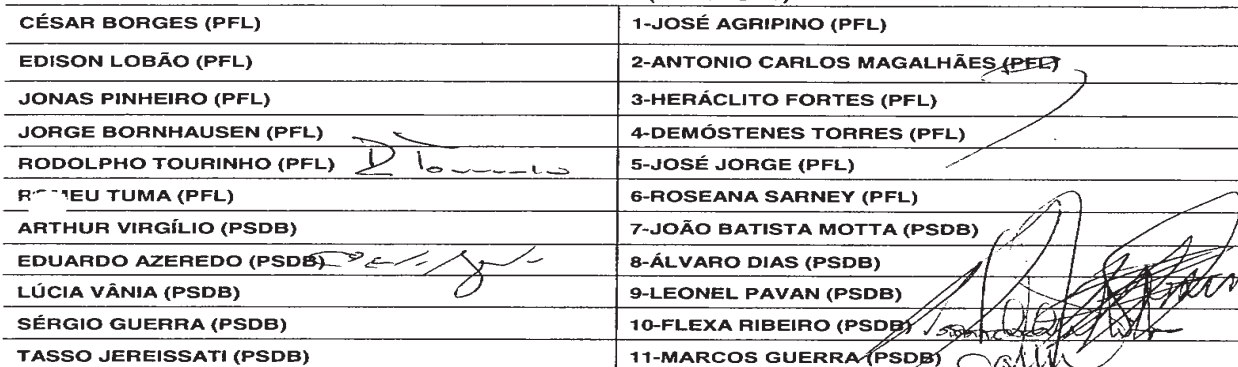 CÉSAR BORGES (PFL) 1-JOSÉ AGRIPINO (PFL)
EDISON LOBÃO (PFL) 2-ANTONIO CARLOS MAGALHÃES (PFL)
JONAS PINHEIRO (PFL) 3-HERÁCLITO FORTES (PFL)
JORGE BORNHAUSEN (PFL) 4-DEMÓSTENES TORRES (PFL)
RODOLPHO TOURINHO (PFL) 5-JOSÉ JORGE (PFL)
TUMA (PFL) 6-ROSEANA SARNEY (PFL)
ARTHUR VIRGÍLIO (PSDB) 7-JOÃO BATISTA MOTTA (PSDB)
EDUARDO AZEREDO (PSDB) 8-ÁLVARO DIAS (PSDB)
LÚCIA VÂNIA (PSDB) 9-LEONEL PAVAN (PSDB)
SÉRGIO GUERRA (PSDB) 10-FLEXA RIBEIRO (PSDB)
TASSO JEREISSATI (PSDB) 11-MARCOS GUERRA (PSDB)